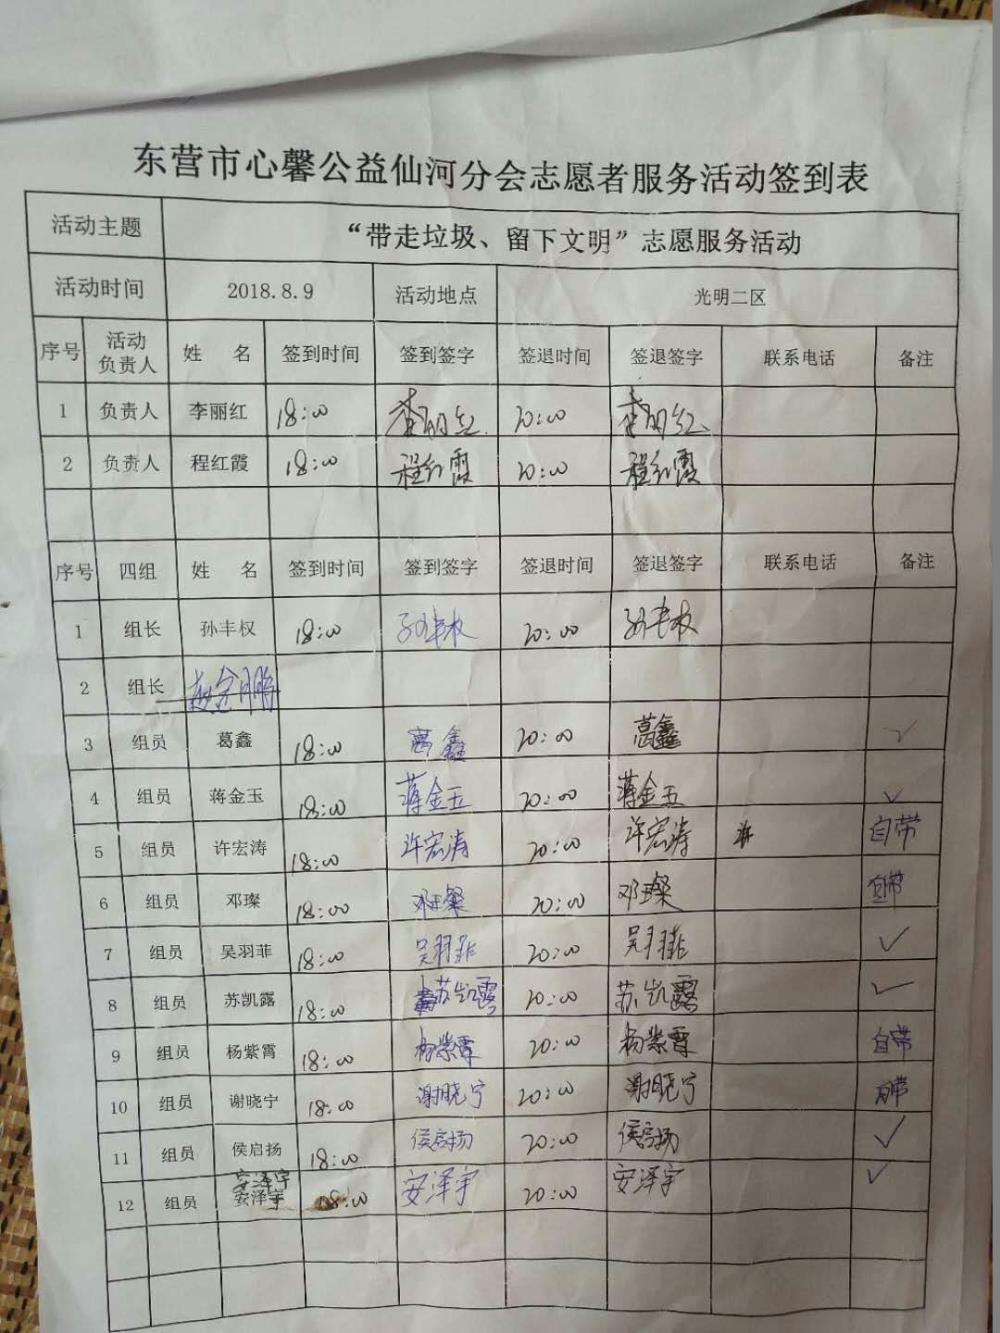 东营市心馨公益仙河分会志愿者服务活动签到表
活动主题 “带走垃圾、留下文明”志愿服务活动
活动时间 2018.8.9 活动地点 光明二区
序号 活动负责人 姓 名 签到时间 签到签字 签退时间 签退签字 联系电话 备注
1 负责人 李丽红 18:00 李丽红 20:00 李丽红
2 负责人 程红霞 18:00 程红霞 20:00 程红霞
序号 四组 姓 名 签到时间 签到签字 签退时间 签退签字 联系电话 备注
1 组长 孙丰权 18:00 孙丰权 20:00 孙丰权
2 组长
3 组员 葛鑫 18:00 葛鑫 20:00 葛鑫 ✓
4 组员 蒋金玉 18:00 蒋金玉 20:00 蒋金玉 ✓
5 组员 许宏涛 18:00 许宏涛 20:00 许宏涛 自带
6 组员 邓璨 18:00 邓璨 20:00 邓璨 自带
7 组员 吴羽菲 18:00 吴羽菲 20:00 吴羽菲 ✓
8 组员 苏凯露 18:00 苏凯露 20:00 苏凯露 ✓
9 组员 杨紫霄 18:00 杨紫霄 20:00 杨紫霄 自带
10 组员 谢晓宁 18:00 谢晓宁 20:00 谢晓宁 自带
11 组员 侯启扬 18:00 侯启扬 20:00 侯启扬 ✓
安泽宇
12 组员 安泽宇 18:00 安泽宇 20:00 安泽宇 ✓